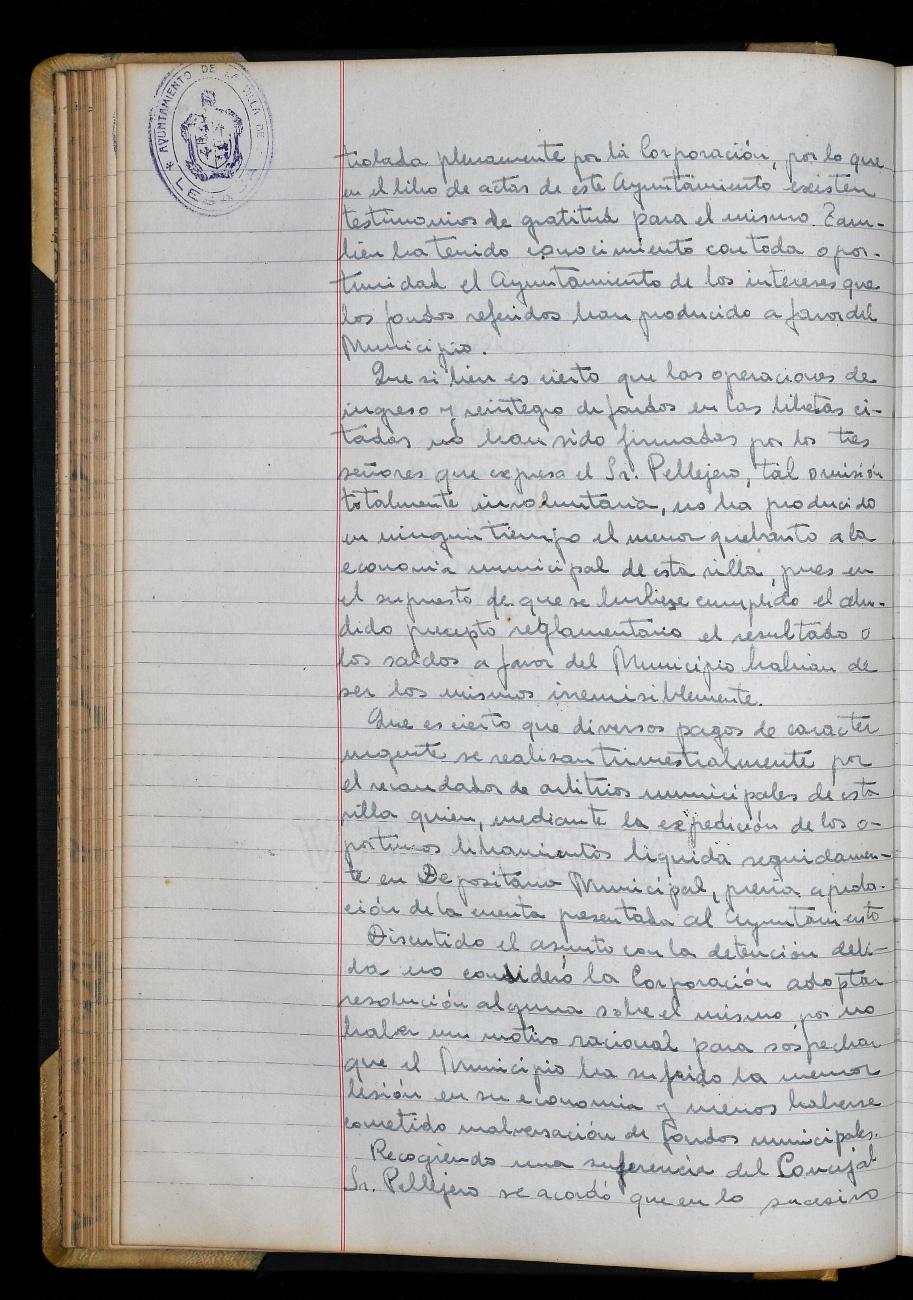 AYUNTAMIENTO DE LA VILLA DE
LESACA
trolada plenamente por la Corporación, por lo que
en el libro de actas de este Ayuntamiento existen
testimonios de gratitud para el mismo. Tam-
bien ha tenido conocimiento con toda opor-
tunidad el Ayuntamiento de los intereses que
los fondos referidos han producido a favor del
Municipio.
Que si bien es cierto que las operaciones de
ingreso y reintegro de fondos en las libretas ci-
tadas no han sido firmadas por los tres
señores que expresa el Sr. Pellejero, tal omisión
totalmente involuntaria, no ha producido
en ningun tiempo el menor quebranto a la
economia municipal de esta villa, pues en
el supuesto de que se hubiese cumplido el alu-
dido precepto reglamentario el resultado o
los saldos a favor del Municipio habrian de
ser los mismos irremisiblemente.
Que es cierto que diversos pagos de caracter
urgente se realizan trimestralmente por
el recaudador de arbitrios municipales de esta
villa quien, mediante la expedición de los o-
portunos libramientos liquida seguidamen-
te en Depositaria Municipal, previa aproba-
ción de la cuenta presentada al Ayuntamiento
Discutido el asunto con la detención debi-
da no consideró la Corporación adoptar
resolución alguna sobre el mismo por no
haber un motivo racional para sospechar
que el Municipio ha sufrido la menor
lisión en su economia y menos haberse
cometido malversación de fondos municipales.
Recogiendo una sugerencia del Concejal
Sr. Pellejero se acordó que en lo sucesivo